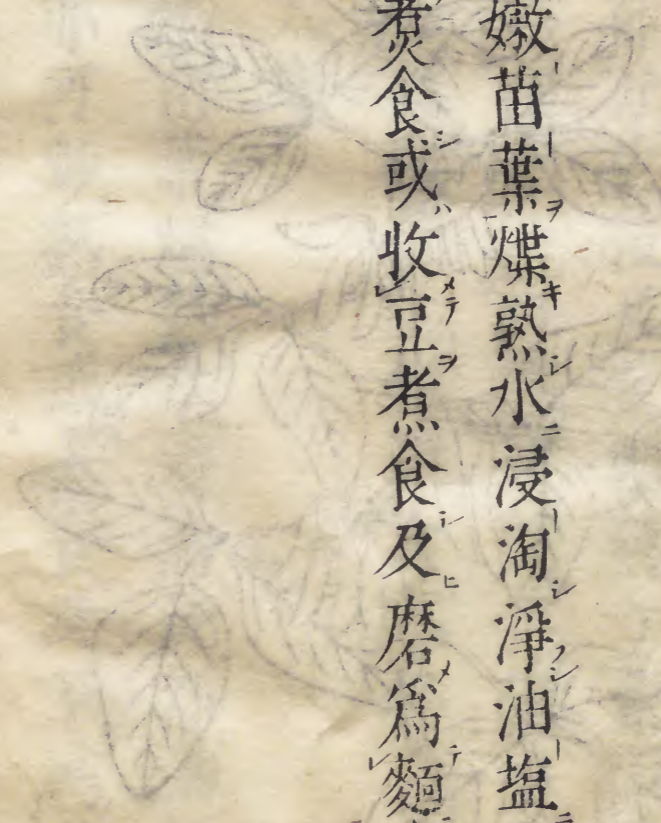 嫩苗葉煠熟水浸淘淨油塩
煑食或收豆煮食及磨爲麵